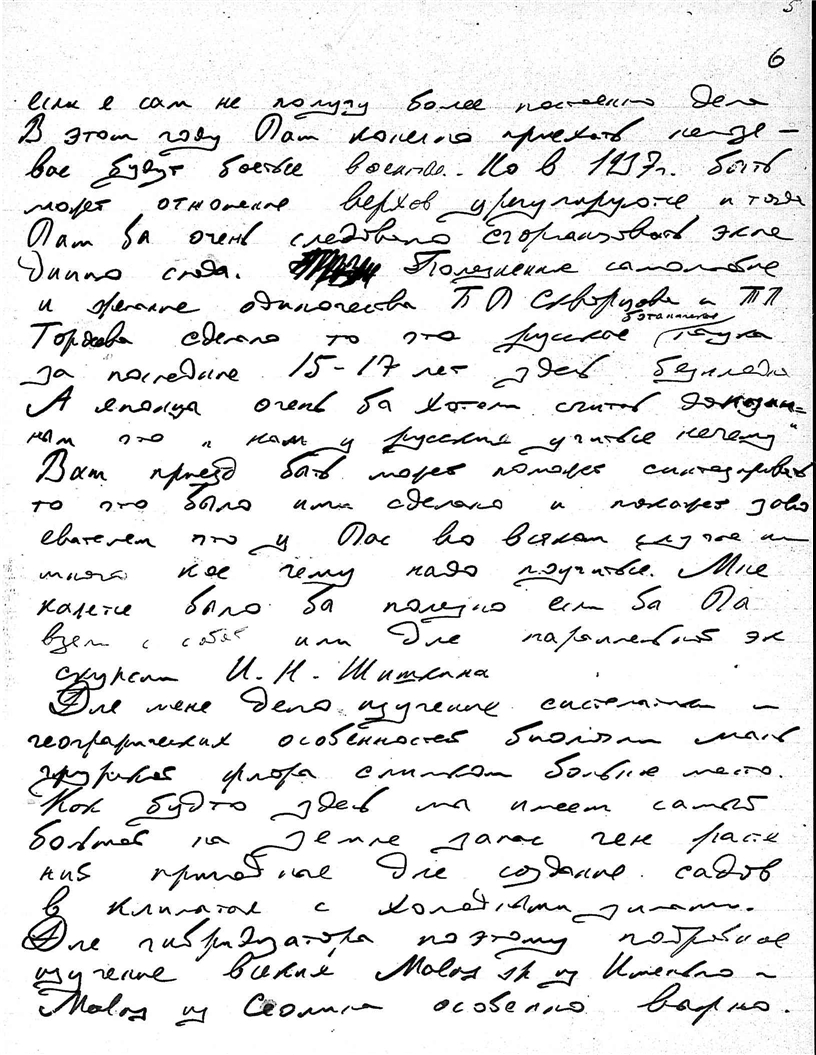 5
6
если я сам не получу более постоянно дела
В этом году Вам конечно приехать нельзя –
вас будут боятся военные. Но в 1937г. быть
может отношение верхов урегулируются и тогда
Вам ба очень следовало сторганизовать экспе
дицию сюда. Болезненное самолюбие
и желание одиночества П П Скворцова и ТП
Гордеева сделало то что русская ботаническая наука
за последние 15-17 лет здесь безплодна
А японцы очень ба хотели считать доказан=
ным что "нам у русских учиться нечему"
Ваш приезд быть может поможет синтезировать
то что было ими сделано и покажет заво
евателем что у Вас во всяком случае
много кое чему надо поучиться. Мне
кажется было ба полезно если ба Ва
взяли с собой или для параллельной эк
скурсии И. Н. Шишкина
Для меня дело изучения систематики и
географических особенностей биологии мань
чжурской флора слишком большое место.
Как будто здесь мы имеем самый
большой на земле запас ген расте
ний пригодные для создания садов
в климатах с холодными зимами.
Для гибридизатора поэтому подробное
изучение всяких Malus sp из и
Malus из особенно важно.